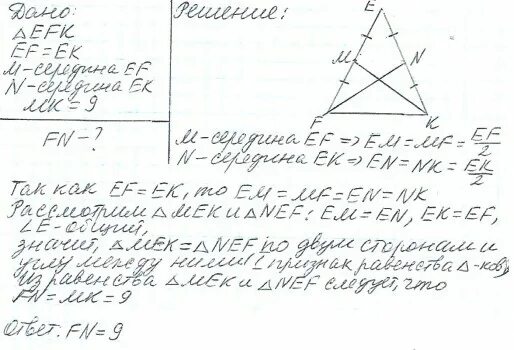 Дано:
△EFK
EF=EK
M-середина EF
N-середина EK
MK=9
FN-?
Решение:
E
M
N
F
K
M-середина EF => EM=MF=EF/2
N-середина EK => EN=NK=EK/2
Так как EF=EK, то EM=MF=EN=NK
Рассмотрим △MEK и △NEF: EM=EN, EK=EF,
∠E-общий,
значит, △MEK=△NEF по двум сторонам и
углу между ними (1 признак равенства △-ков)
Из равенства △MEK и △NEF следует, что
FN=MK=9
Ответ: FN=9